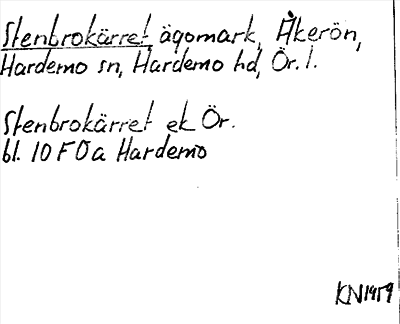 Stenbrokärret ägomark, Åkerön,
Hardemo sn, Hardemo hd, Ör. l.
Stenbrokärret ek Ör.
bl. 10 F 0 a Hardemo
KN 1959